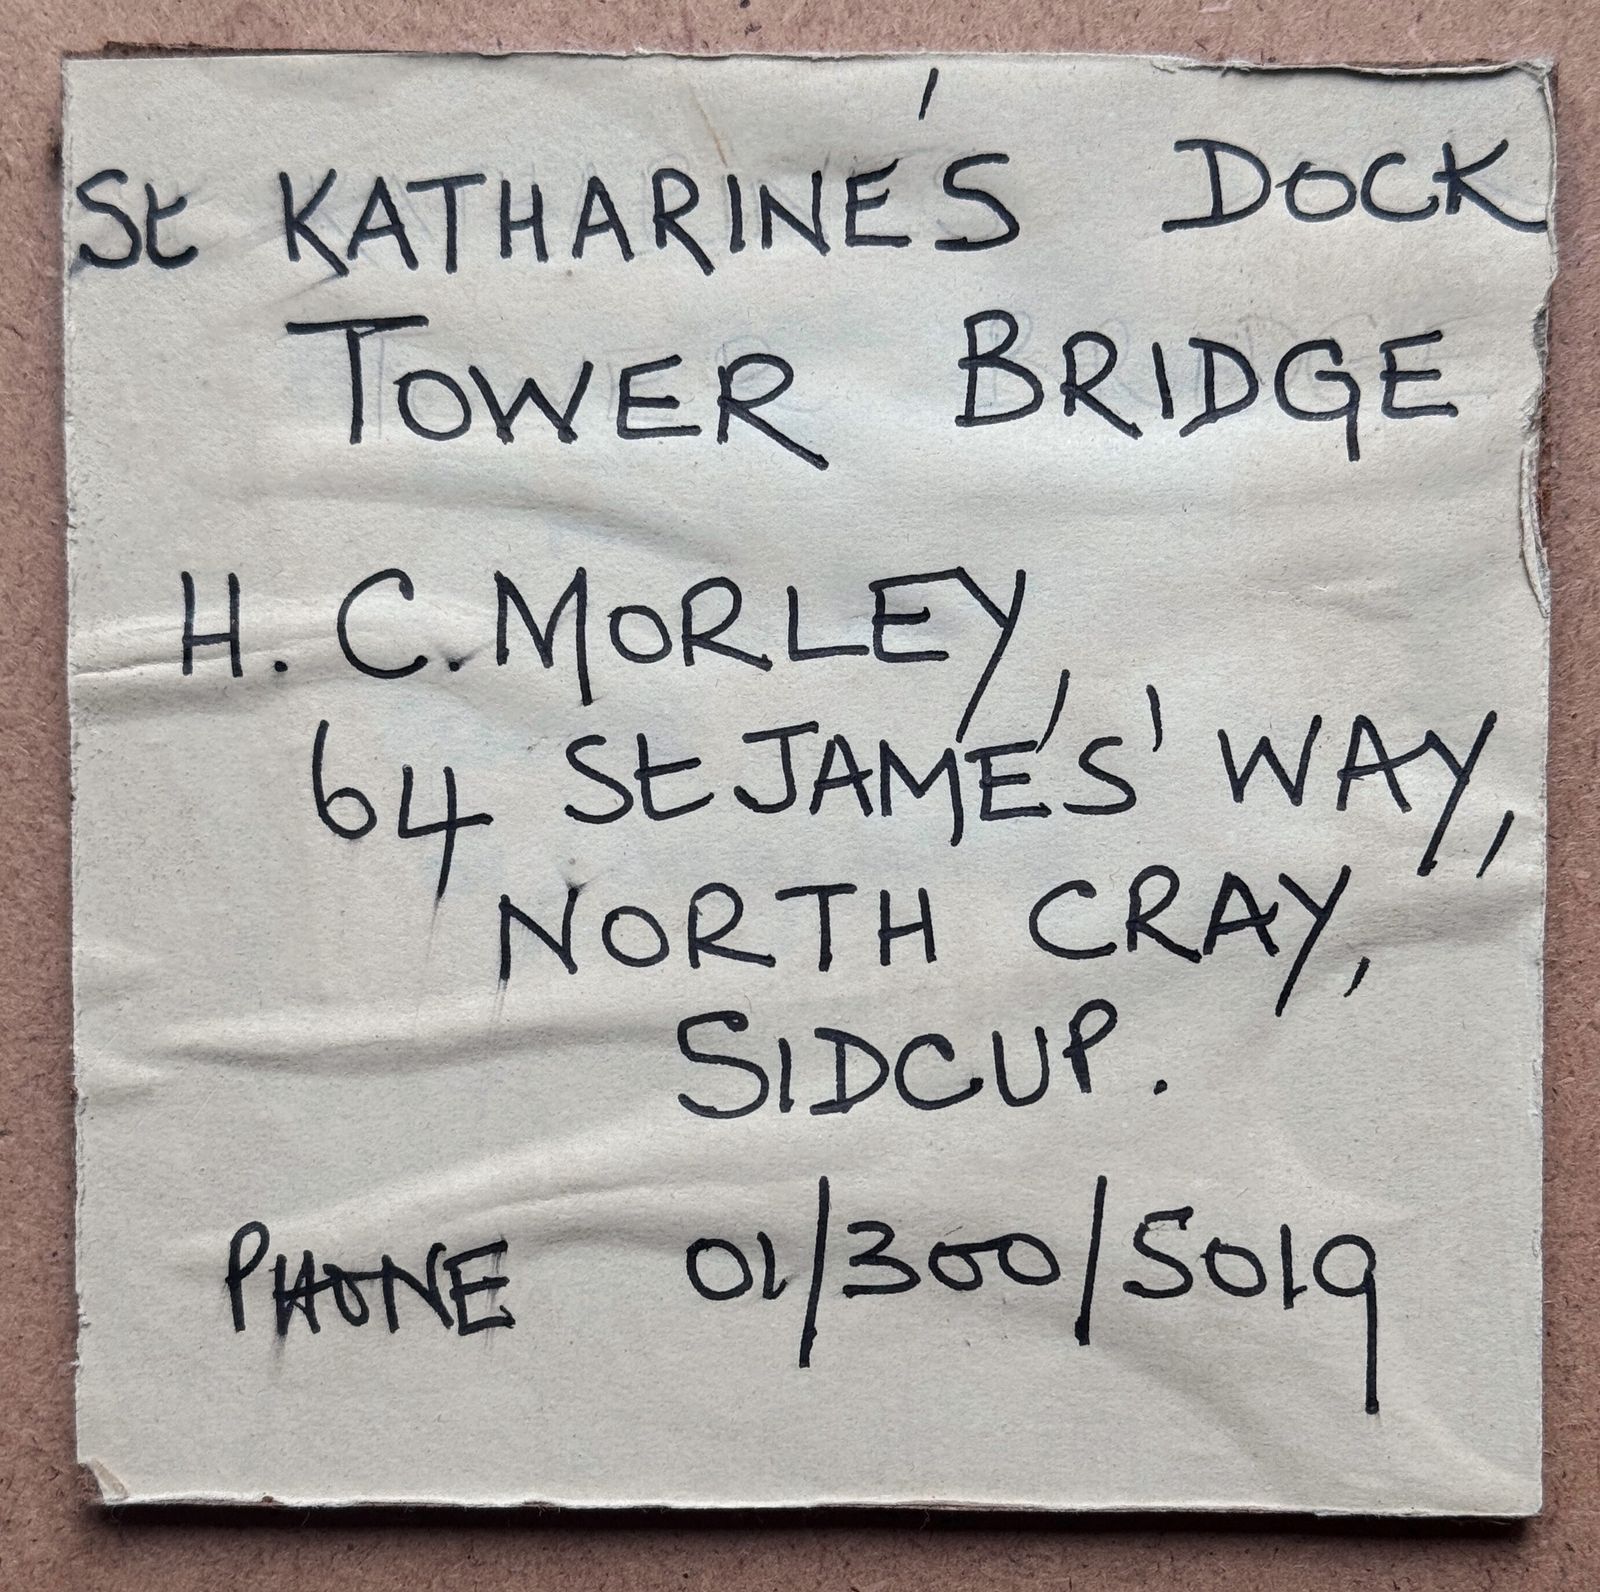 St KATHARINE'S DOCK
TOWER BRIDGE
H. C. MORLEY,
64 St JAME'S' WAY,
NORTH CRAY,
SIDCUP.
PHONE 01/300/5019